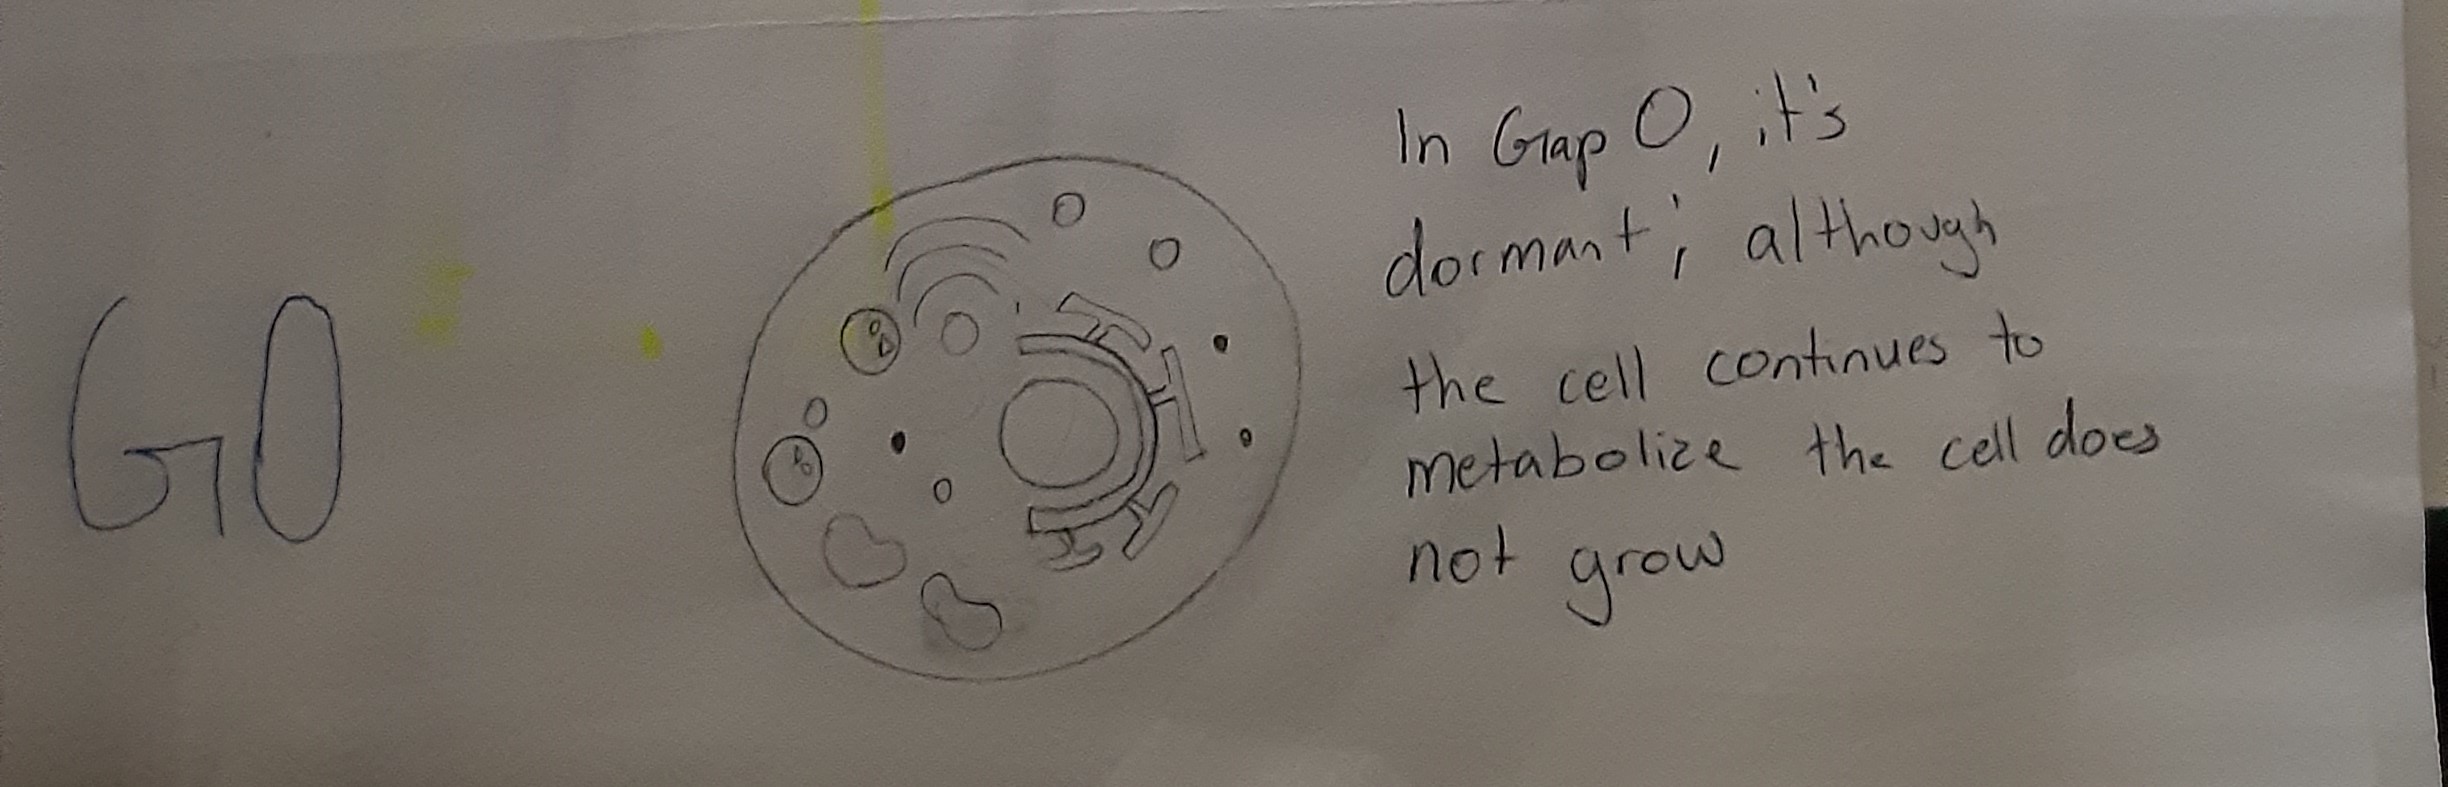 G0
In Gap 0, it's
dormant; although
the cell continues to
metabolize the cell does
not grow